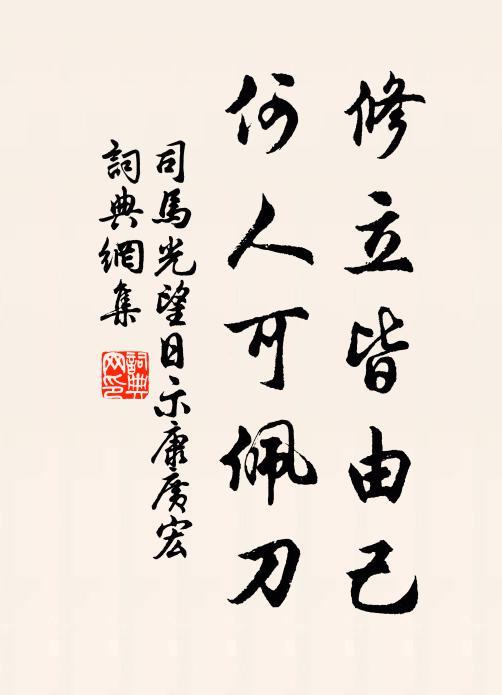 修立皆由己
何人可佩刀
司馬光望日示康廣宏
詞典網集
詞典网印